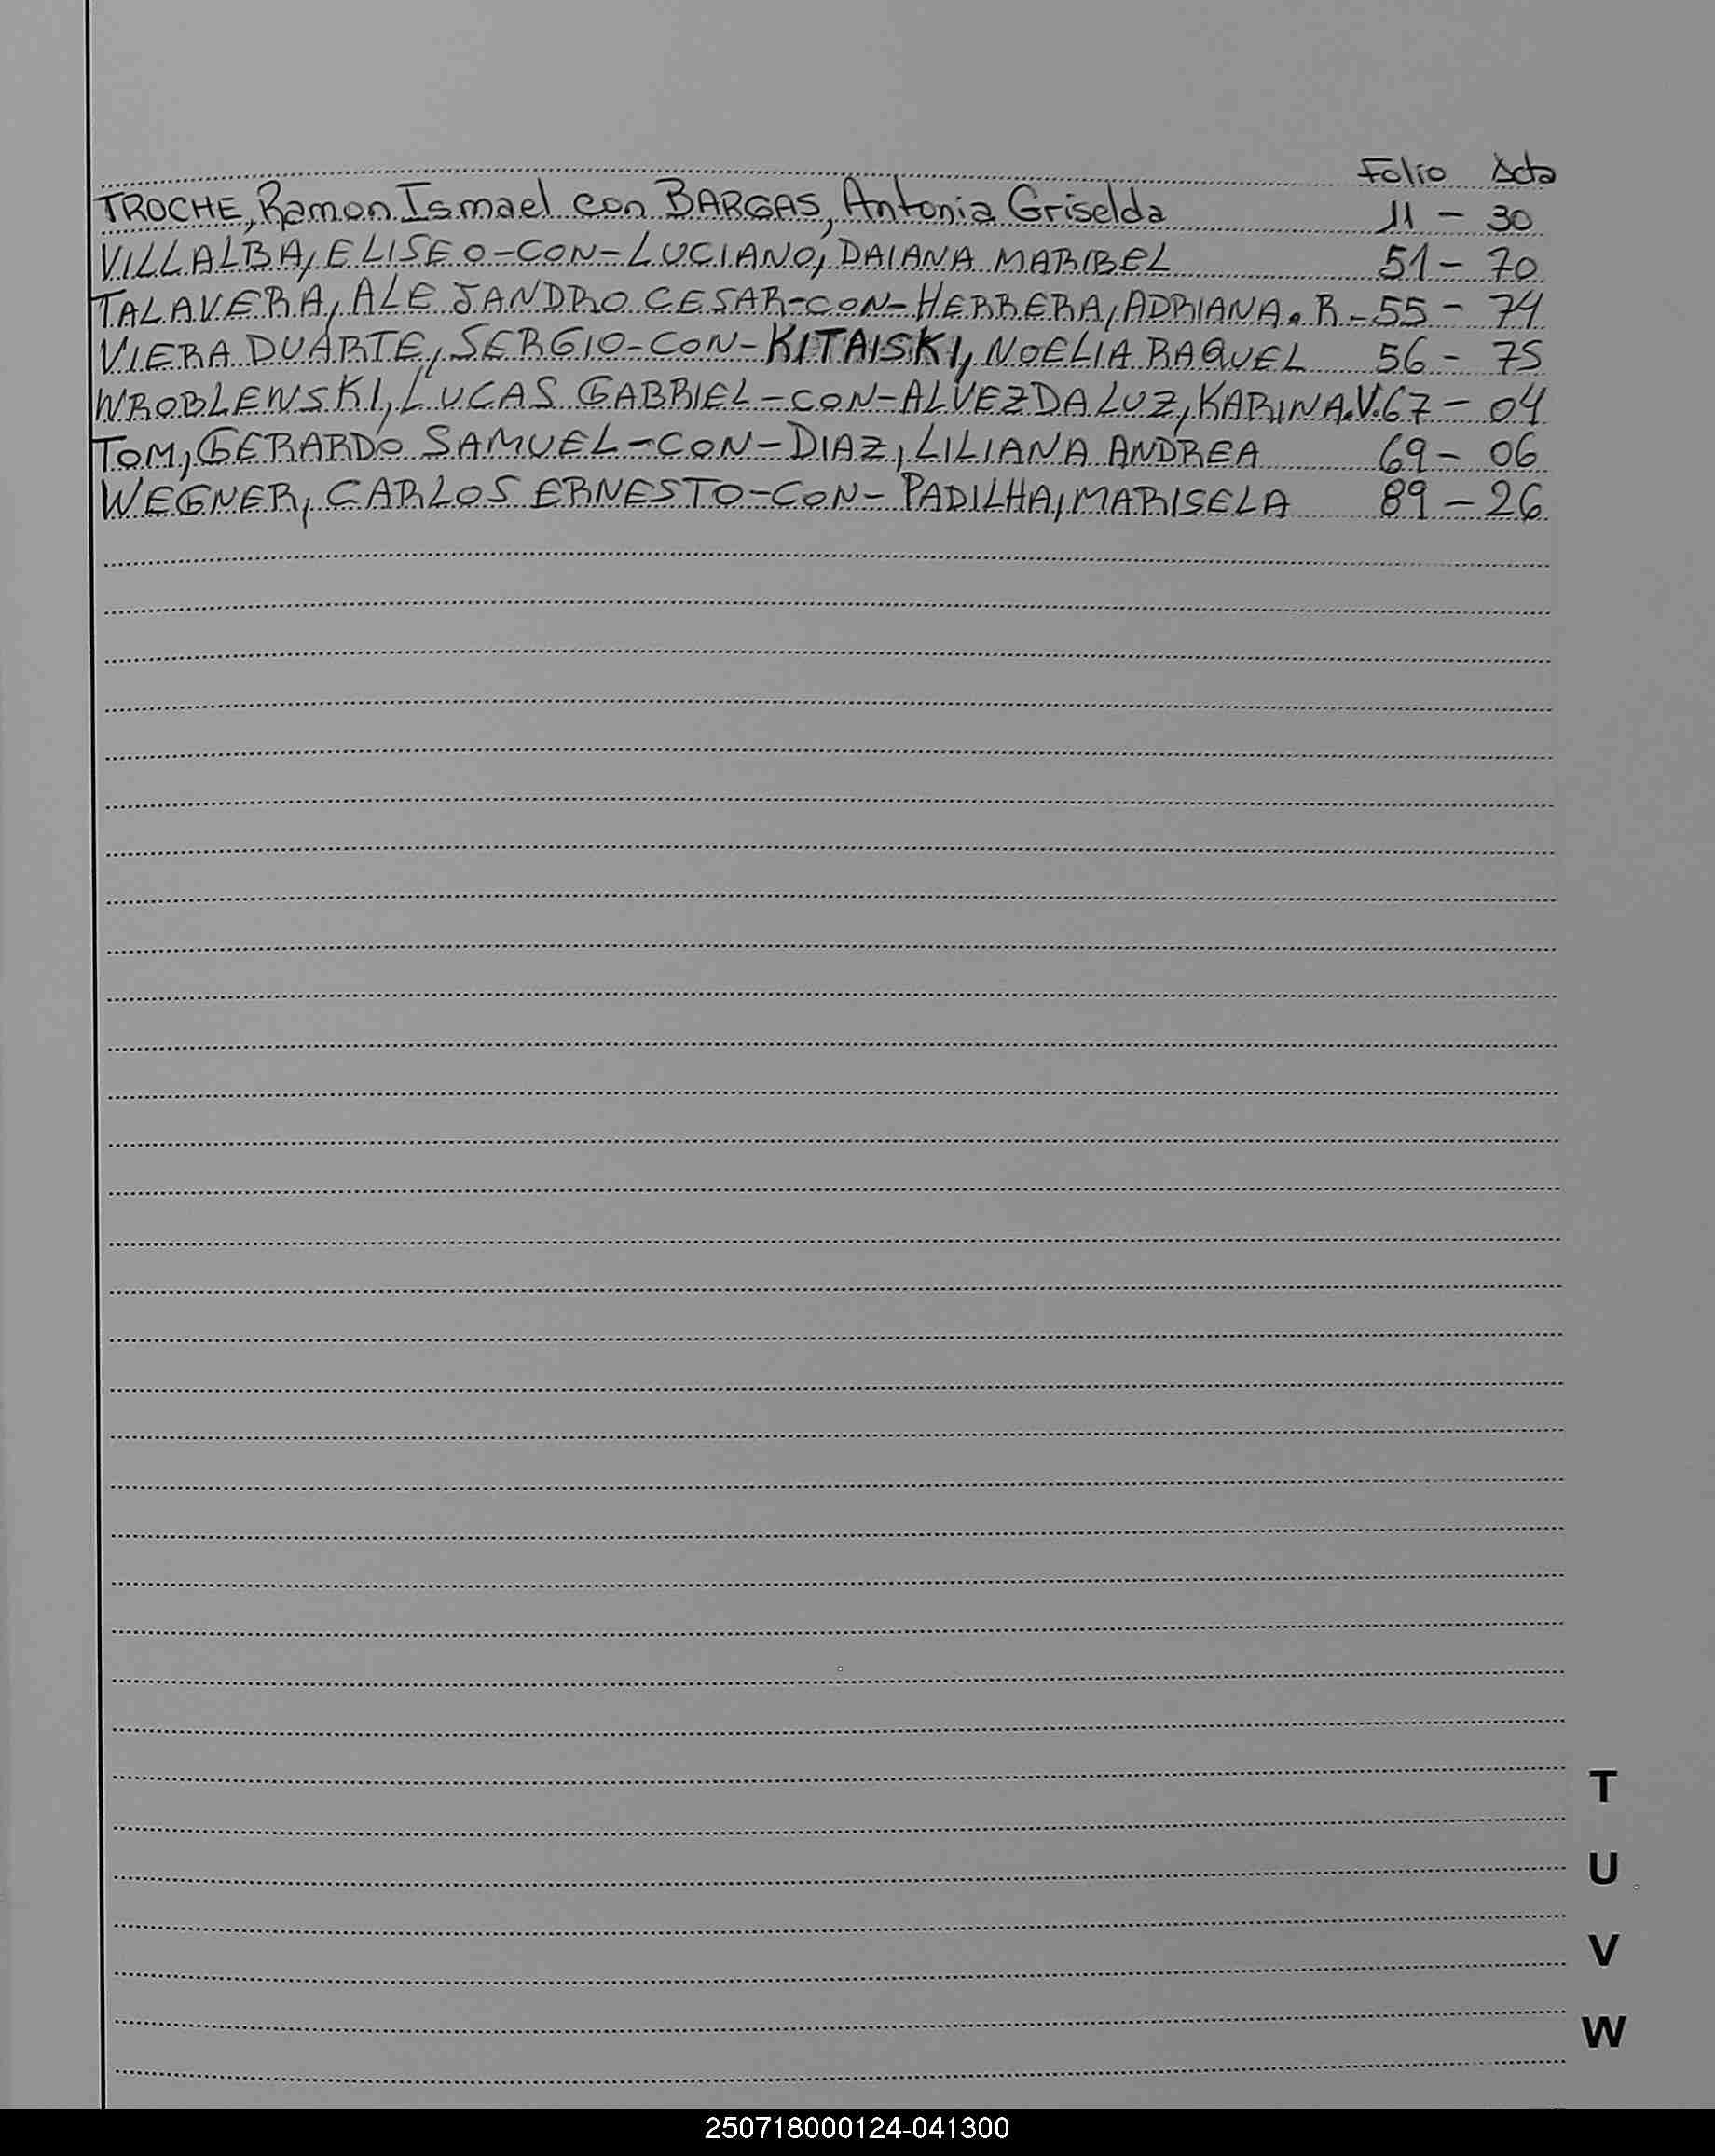 Folio Acta
TROCHE, Ramon Ismael con BARGAS, Antonia Griselda 11 - 30
VILLALBA, ELISEO-CON-LUCIANO, DAIANA MARIBEL 51 - 70
TALAVERA, ALEJANDRO CESAR-CON-HERRERA, ADRIANA. R - 55 - 74
VIERA DUARTE, SERGIO-CON-KITAISKI, NOELIA RAQUEL 56 - 75
WROBLEWSKI, LUCAS GABRIEL-CON-ALVEZ DA LUZ, KARINA.V. 67 - 04
TOM, GERARDO SAMUEL-CON-DIAZ, LILIANA ANDREA 69 - 06
WEGNER, CARLOS ERNESTO-CON-PADILHA, MARISELA 89 - 26
T
U
V
W
250718000124-041300